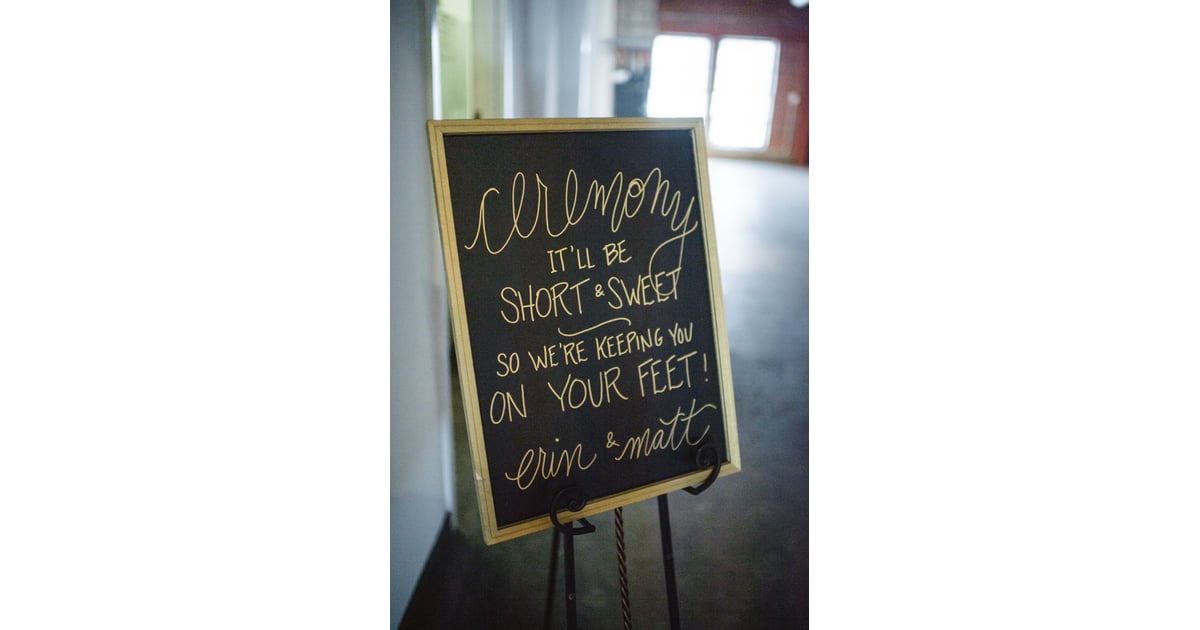 ceremony
IT'LL BE
SHORT & SWEET
SO WE'RE KEEPING YOU
ON YOUR FEET!
erin & matt